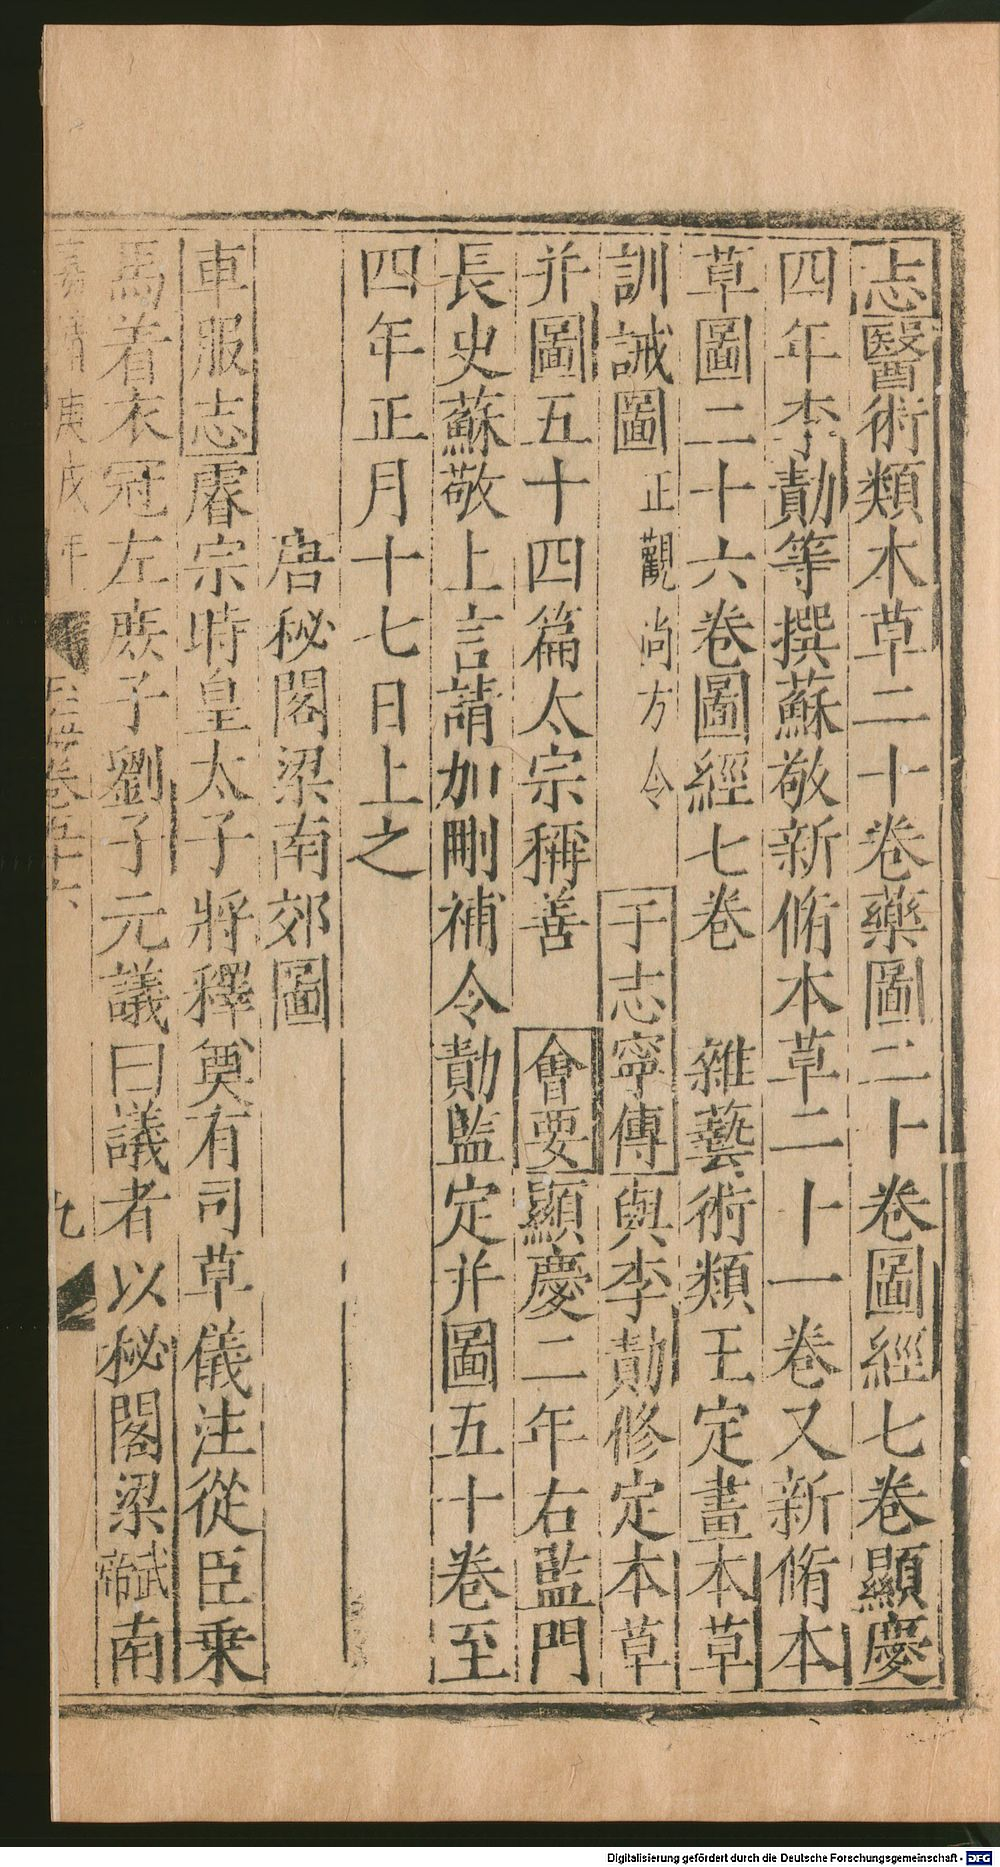 志醫術類本草二十卷藥圖二十卷圖經七卷顯慶
四年李勣等撰蘇敬新脩本草二十一卷又新脩本
草圖二十六卷圖經七卷　雜藝術類王定畫本草
訓誡圖正觀尚方令　于志寧傳與李勣修定本草
并圖五十四篇太宗稱善　會要顯慶二年右監門
長史蘇敬上言請加刪補令勣監定并圖五十卷至
四年正月十七日上之
唐秘閣梁南郊圖
車服志睿宗時皇太子將釋奠有司草儀注從臣乗
馬着衣冠左庶子劉子元議曰議者以秘閣梁武帝南
嘉靖庚戌年
玉海卷五十六
九
Digitalisierung gefördert durch die Deutsche Forschungsgemeinschaft - DFG